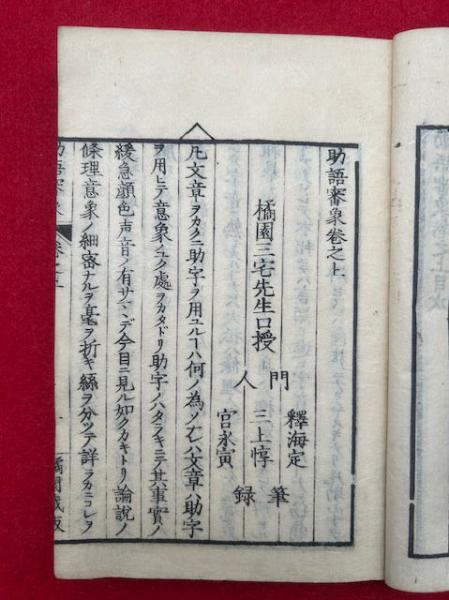 助語審象卷之上
橘園三宅先生口授
釋海定
門人 三上惇 筆錄
宮永寅
凡文章ヲカクニ助字ヲ用ユルヿハ何ノ為ソナレハ文章ハ助字
ヲ用ヒテ意象ユク處ヲカタドリ助字ノハタラキニテ其事實ノ
緩急顔色声音ノ有サマデ今目ニ見ル如クカキトリ論説ノ
條理意象ノ細密ナルヲ毫ヲ折キ絲ヲ分ツテ詳ラカニコレヲ
助語審象 卷之上
橘園藏版